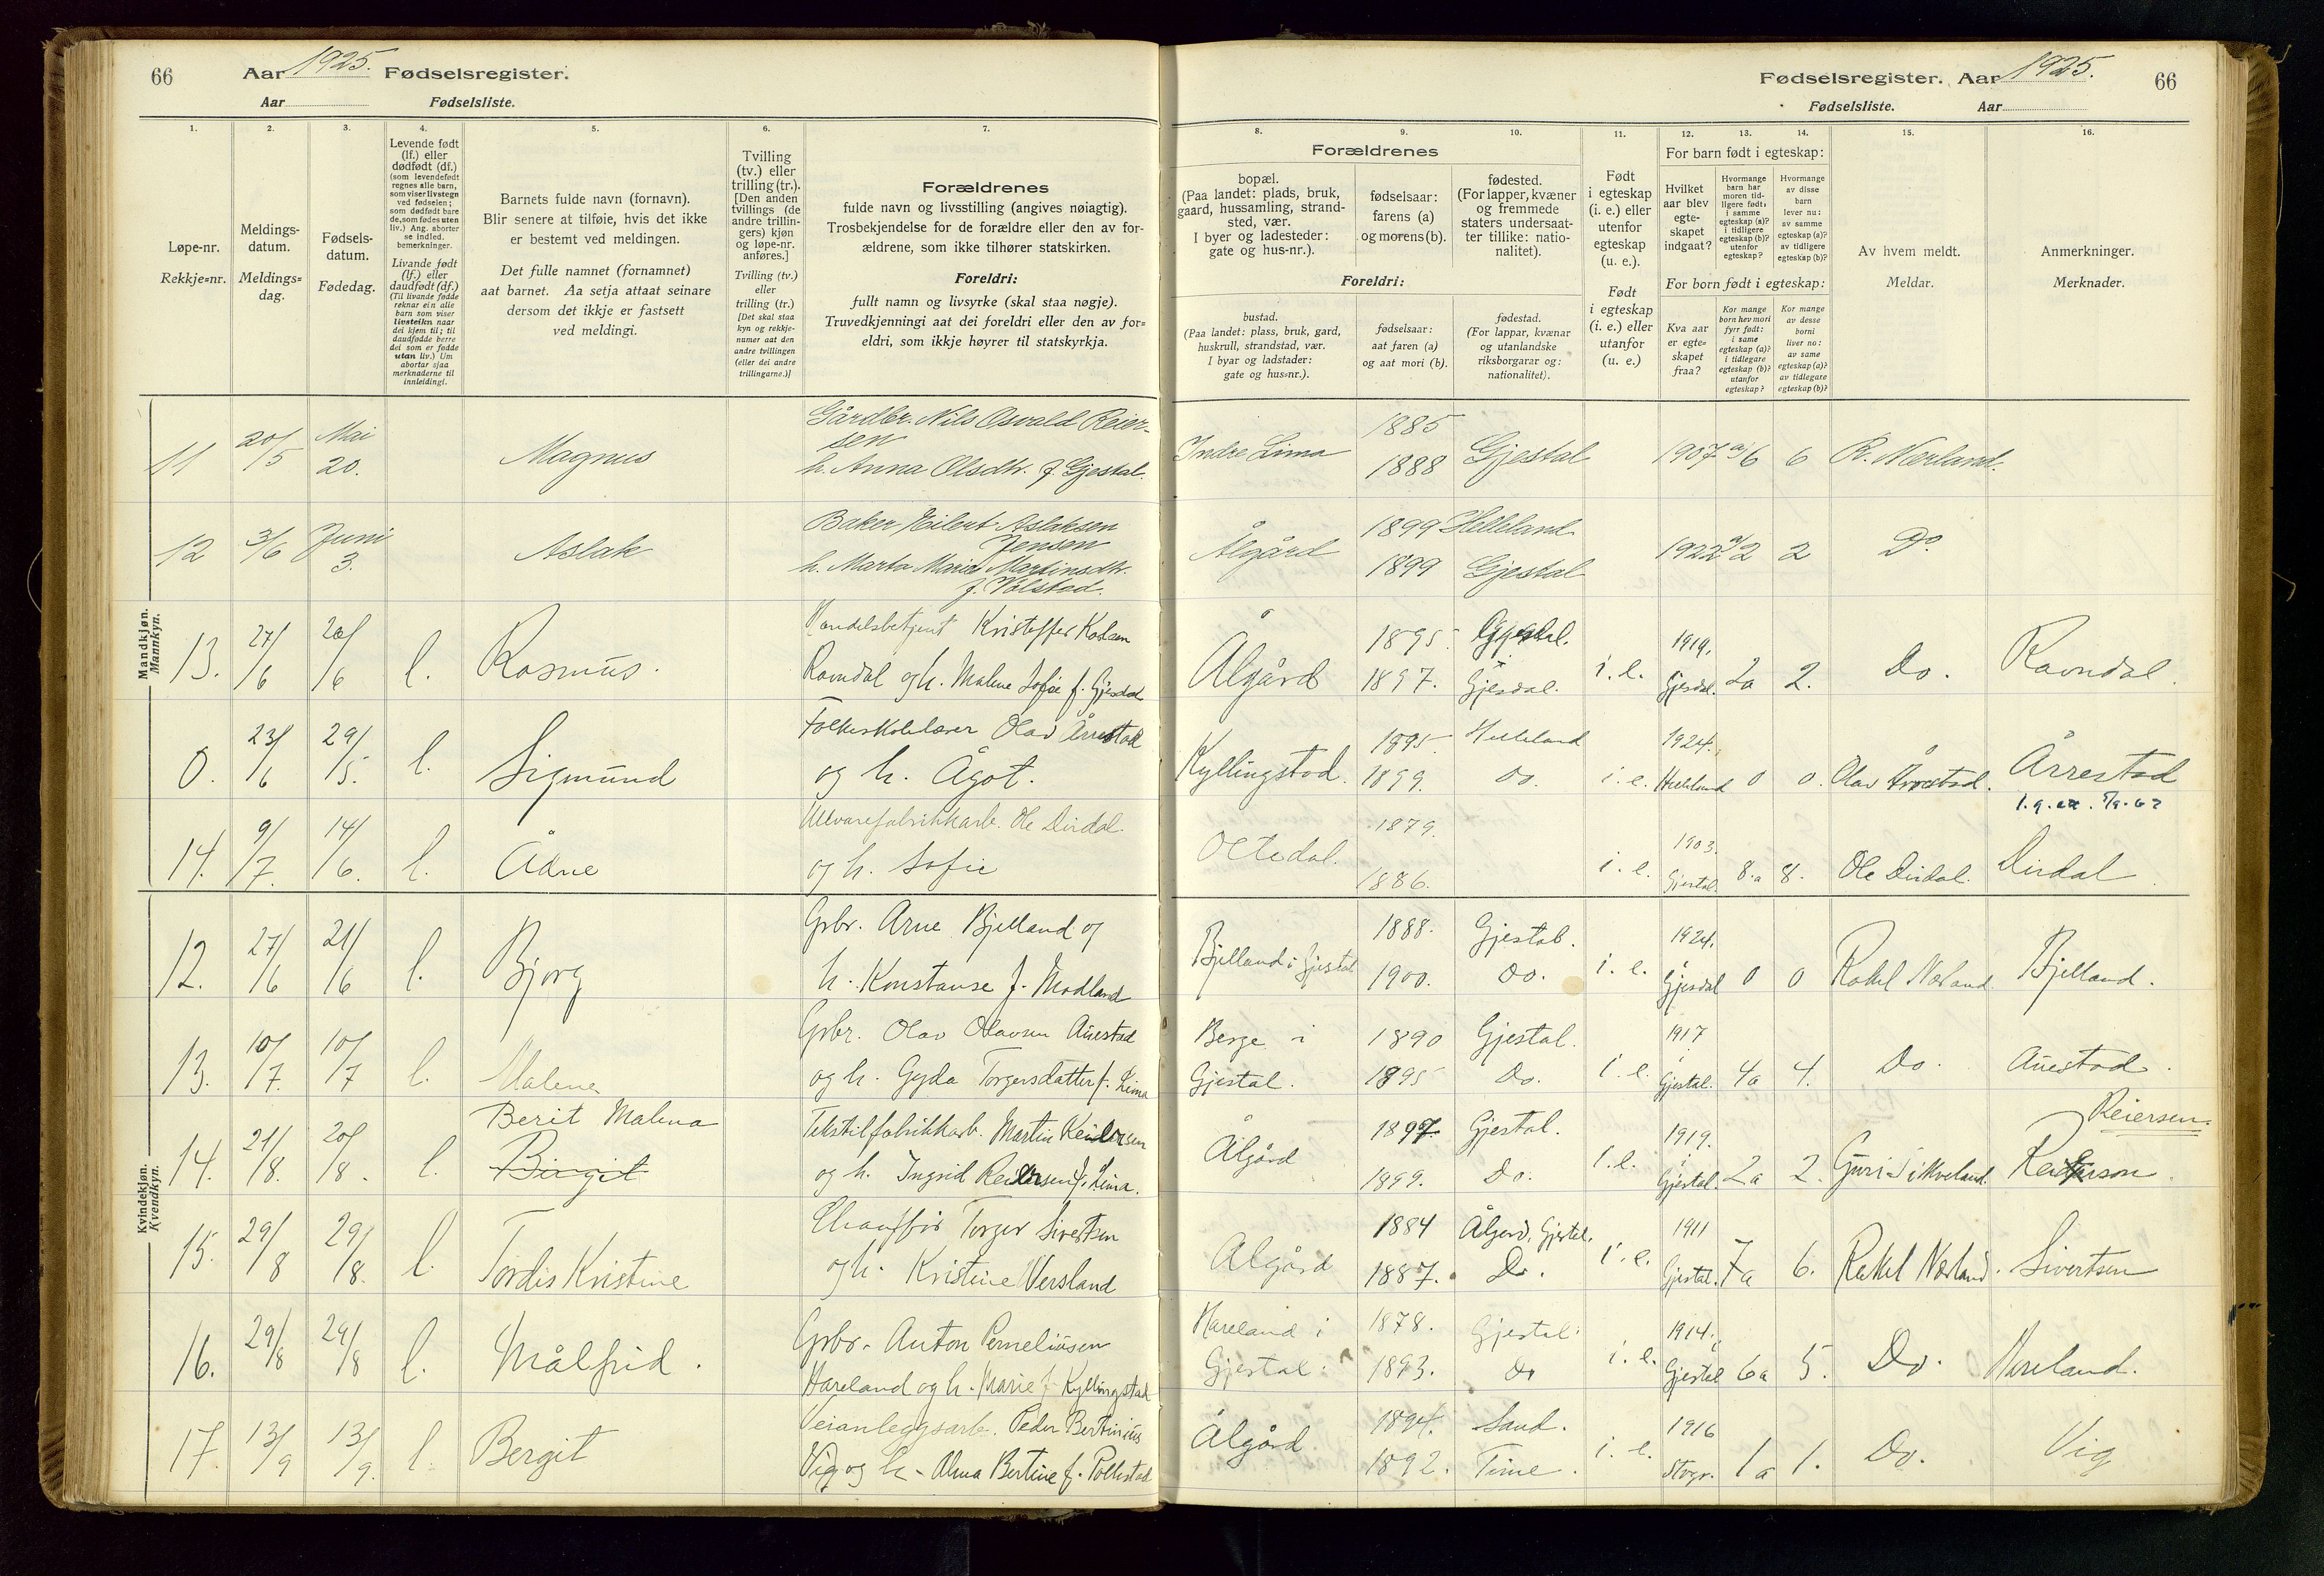 66 Aar 1925. Fødselsregister.
Aar Fødselsliste.
Fødselsregister. Aar 1925. 66
Fødselsliste. Aar
1. 2. 3. 4. 5. 6. 7.
Løpe-nr.
Rekkje=nr.
Meldings-
datum.
Meldings=
dag.
Fødsels-
datum.
Fødedag.
Levende født
(lf.) eller
dødfødt (df.)
(som levendefødt
regnes alle barn,
som viser livstegn
ved fødselen;
som dødfødt bare
de, som fødes uten
liv.) Ang. aborter
se indled.
bemerkninger.
Livande født
(lf.) eller
daudfødt (df.)
(Til livande fødde
reknar ein alle
barn som viser
livsteikn naar
dei kjem til; til
daudfødde berre
dei som er fødde
utan liv.) Um
abortar sjaa
merknaderne til
innleidingi.
Barnets fulde navn (fornavn).
Blir senere at tilføie, hvis det ikke
er bestemt ved meldingen.
Det fulle namnet (fornamnet)
aat barnet. Aa setja attaat seinare
dersom det ikkje er fastsett
ved meldingi.
Tvilling
(tv.) eller
trilling (tr.).
[Den anden
tvillings (de
andre trillin-
gers) kjøn
og løpe-nr.
anføres.]
Tvilling (tv.)
eller
trilling (tr.)
[Det skal staa
kyn og rekkje-
numer aat den
andre tvillingen
(eller dei andre
trillingarne.)]
Forældrenes
fulde navn og livsstilling (angives nøiagtig).
Trosbekjendelse for de forældre eller den av for-
ældrene, som ikke tilhører statskirken.
Foreldri:
fullt namn og livsyrke (skal staa nøgje).
Truvedkjenningi aat dei foreldri eller den av for=
eldri, som ikkje høyrer til statskyrkja.
8. 9. 10. 11. 12. 13. 14. 15. 16.
Forældrenes
bopæl.
(Paa landet: plads, bruk,
gaard, hussamling, strand-
sted, vær.
I byer og ladesteder:
gate og hus-nr.).
fødselsaar:
farens (a)
og morens (b).
fødested.
(For lapper, kvæner
og fremmede
staters undersaat-
ter tillike: natio-
nalitet).
Foreldri:
bustad.
(Paa landet: plass, bruk, gard,
huskrull, strandstad, vær.
I byar og ladstader:
gate og hus=nr.).
fødselsaar:
aat faren (a)
og aat mori (b).
fødestad.
(For lappar, kvænar
og utanlandske
riksborgarar og:
nationalitet).
Født
i egteskap
(i. e.) eller
utenfor
egteskap
(u. e.).
Født
i egteskap
(i. e.) eller
utanfor
(u. e.)
For barn født i egteskap:
Hvilket
aar blev
egte-
skapet
indgaat?
Hvormange
barn har
moren tid-
ligere født:
i samme
egteskap (a)?
i tidligere
egteskap (b)?
utenfor
egteskap?
Hvormange
av disse
barn
lever nu:
av samme
egteskap (a)?
av tidligere
egteskap (b)?
For born født i egteskap:
Kva aar
er egte=
skapet
fraa?
Kor mange
born hev mori
fyrr født:
i same
egteskap (a)?
i tidlegare
egteskap (b)?
utanfor
egteskap?
Kor mange
av desse
borni
liver no:
av same
egteskap (a)?
av tidlegare
egteskap (b)?
Av hvem meldt.
Meldar.
Anmerkninger.
Merknader.
Mandkjøn.
Mannkyn.
11 20/5 Mai 20. Magnus Gårdbr. Nils Osvald Reier-
sen
h. Anna Olsdtr. f. Gjestal. Indre Lima 1885 1888 Gjestal 1907 a/6 6 R. Nærland.
12 3/6 Juni 3. Aslak Baker Eilert Aslaksen
Jensen
h. Marta Marie Martinsdtr.
f. Ålstad. Ålgård 1899 Helleland 1899 Gjestal 1922 a/2 2 Do
13. 27/6 20/6 l. Rasmus. Handelsbetjent Kristoffer
Ravndal og h. Malene Sofie f. Gjesdal Ålgård 1895. Gjesdal. 1897. Gjesdal. i. e. 1919. Gjesdal. 2a 2. Do. Ravndal.
0. 23/6 29/5. l. Sigmund Folkeskolelærer Olav Årrestad
og h. Ågot. Kyllingstad. 1895. Helleland 1899. Do. i. e. 1924. Helleland 0 0. Olav Årrestad. Årrestad
14. 9/7. 14/6. l. Ådne Ullvarefabrikkarb. Ole Dirdal.
og h. Sofie Oltedal. 1879. 1886. i. e. 1903. Gjestal. 8.a 8. Ole Dirdal. Dirdal
Kvindekjøn.
Kvendkyn.
12. 27/6 21/6 l. Bjorg Grbr. Arne Bjelland og
h. Konstanse f. Modland Bjelland i Gjestal 1888. Gjestal. 1900. Do. i. e. 1924. i Gjesdal 0 0 Rakel Nærland Bjelland.
13. 10/7. 10/7 l. Malene Grbr. Olav Olavsen Auestad
og h. Gyda Torgersdatter f. Lima Berge i
Gjestal. 1890 Gjestal. 1895 Do. i. e. 1917 i Gjestal. 4a 4. Do. Auestad.
14. 21/8. 20/8. l. Berit Malena
Birgit Tekstilfabrikkarb. Martin Reiersen
og h. Ingrid Reiersen f. Lima. Ålgård 1897. Gjestal. 1899. Do. i. e. 1919. i Gjestal. 2a 2. Guri Reierson. Reiersen.
15. 29/8 29/8. l. Tordis Kristine Chauffør Torger Sivertsen
og h. Kristine Versland Ålgård 1884 Ålgård, Gjestal. 1887. Do. i. e. 1911 Gjestal. 7a 6. Rakel Nærland. Sivertsen
16. 29/8 29/8 l. Målfrid. Grbr. Anton Perneliusen
Hareland og h. Marie f. Kyllingstad Hareland i
Gjestal. 1878. Gjestal. 1893. Do i. e. 1914. i Gjestal 6a 5. Do. Hareland.
17. 13/9 13/9. l. Bergit Veianleggsarb. Peder Bertinius
Vig og h. Alma Bertine f. Pollestad Ålgård. 1894. Sand. 1892. Time. i. e. 1916 Stvgr. 1a 1. Do. Vig